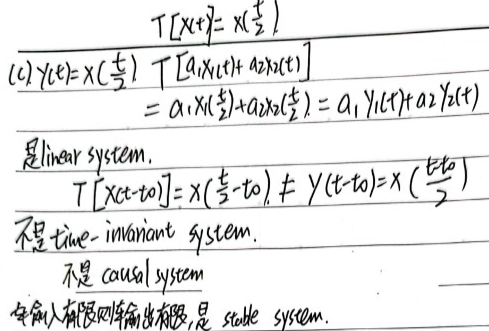 T[x(t)]=x(t/2)
(c) y(t)=x(t/2) T[a₁x₁(t)+a₂x₂(t)]
=a₁x₁(t/2)+a₂x₂(t/2)=a₁y₁(t)+a₂y₂(t)
是linear system.
T[x(t-t₀)]=x(t/2-t₀)≠y(t-t₀)=x((t-t₀)/2)
不是time-invariant system.
不是causal system
输入有限则输出有限,是 stable system.